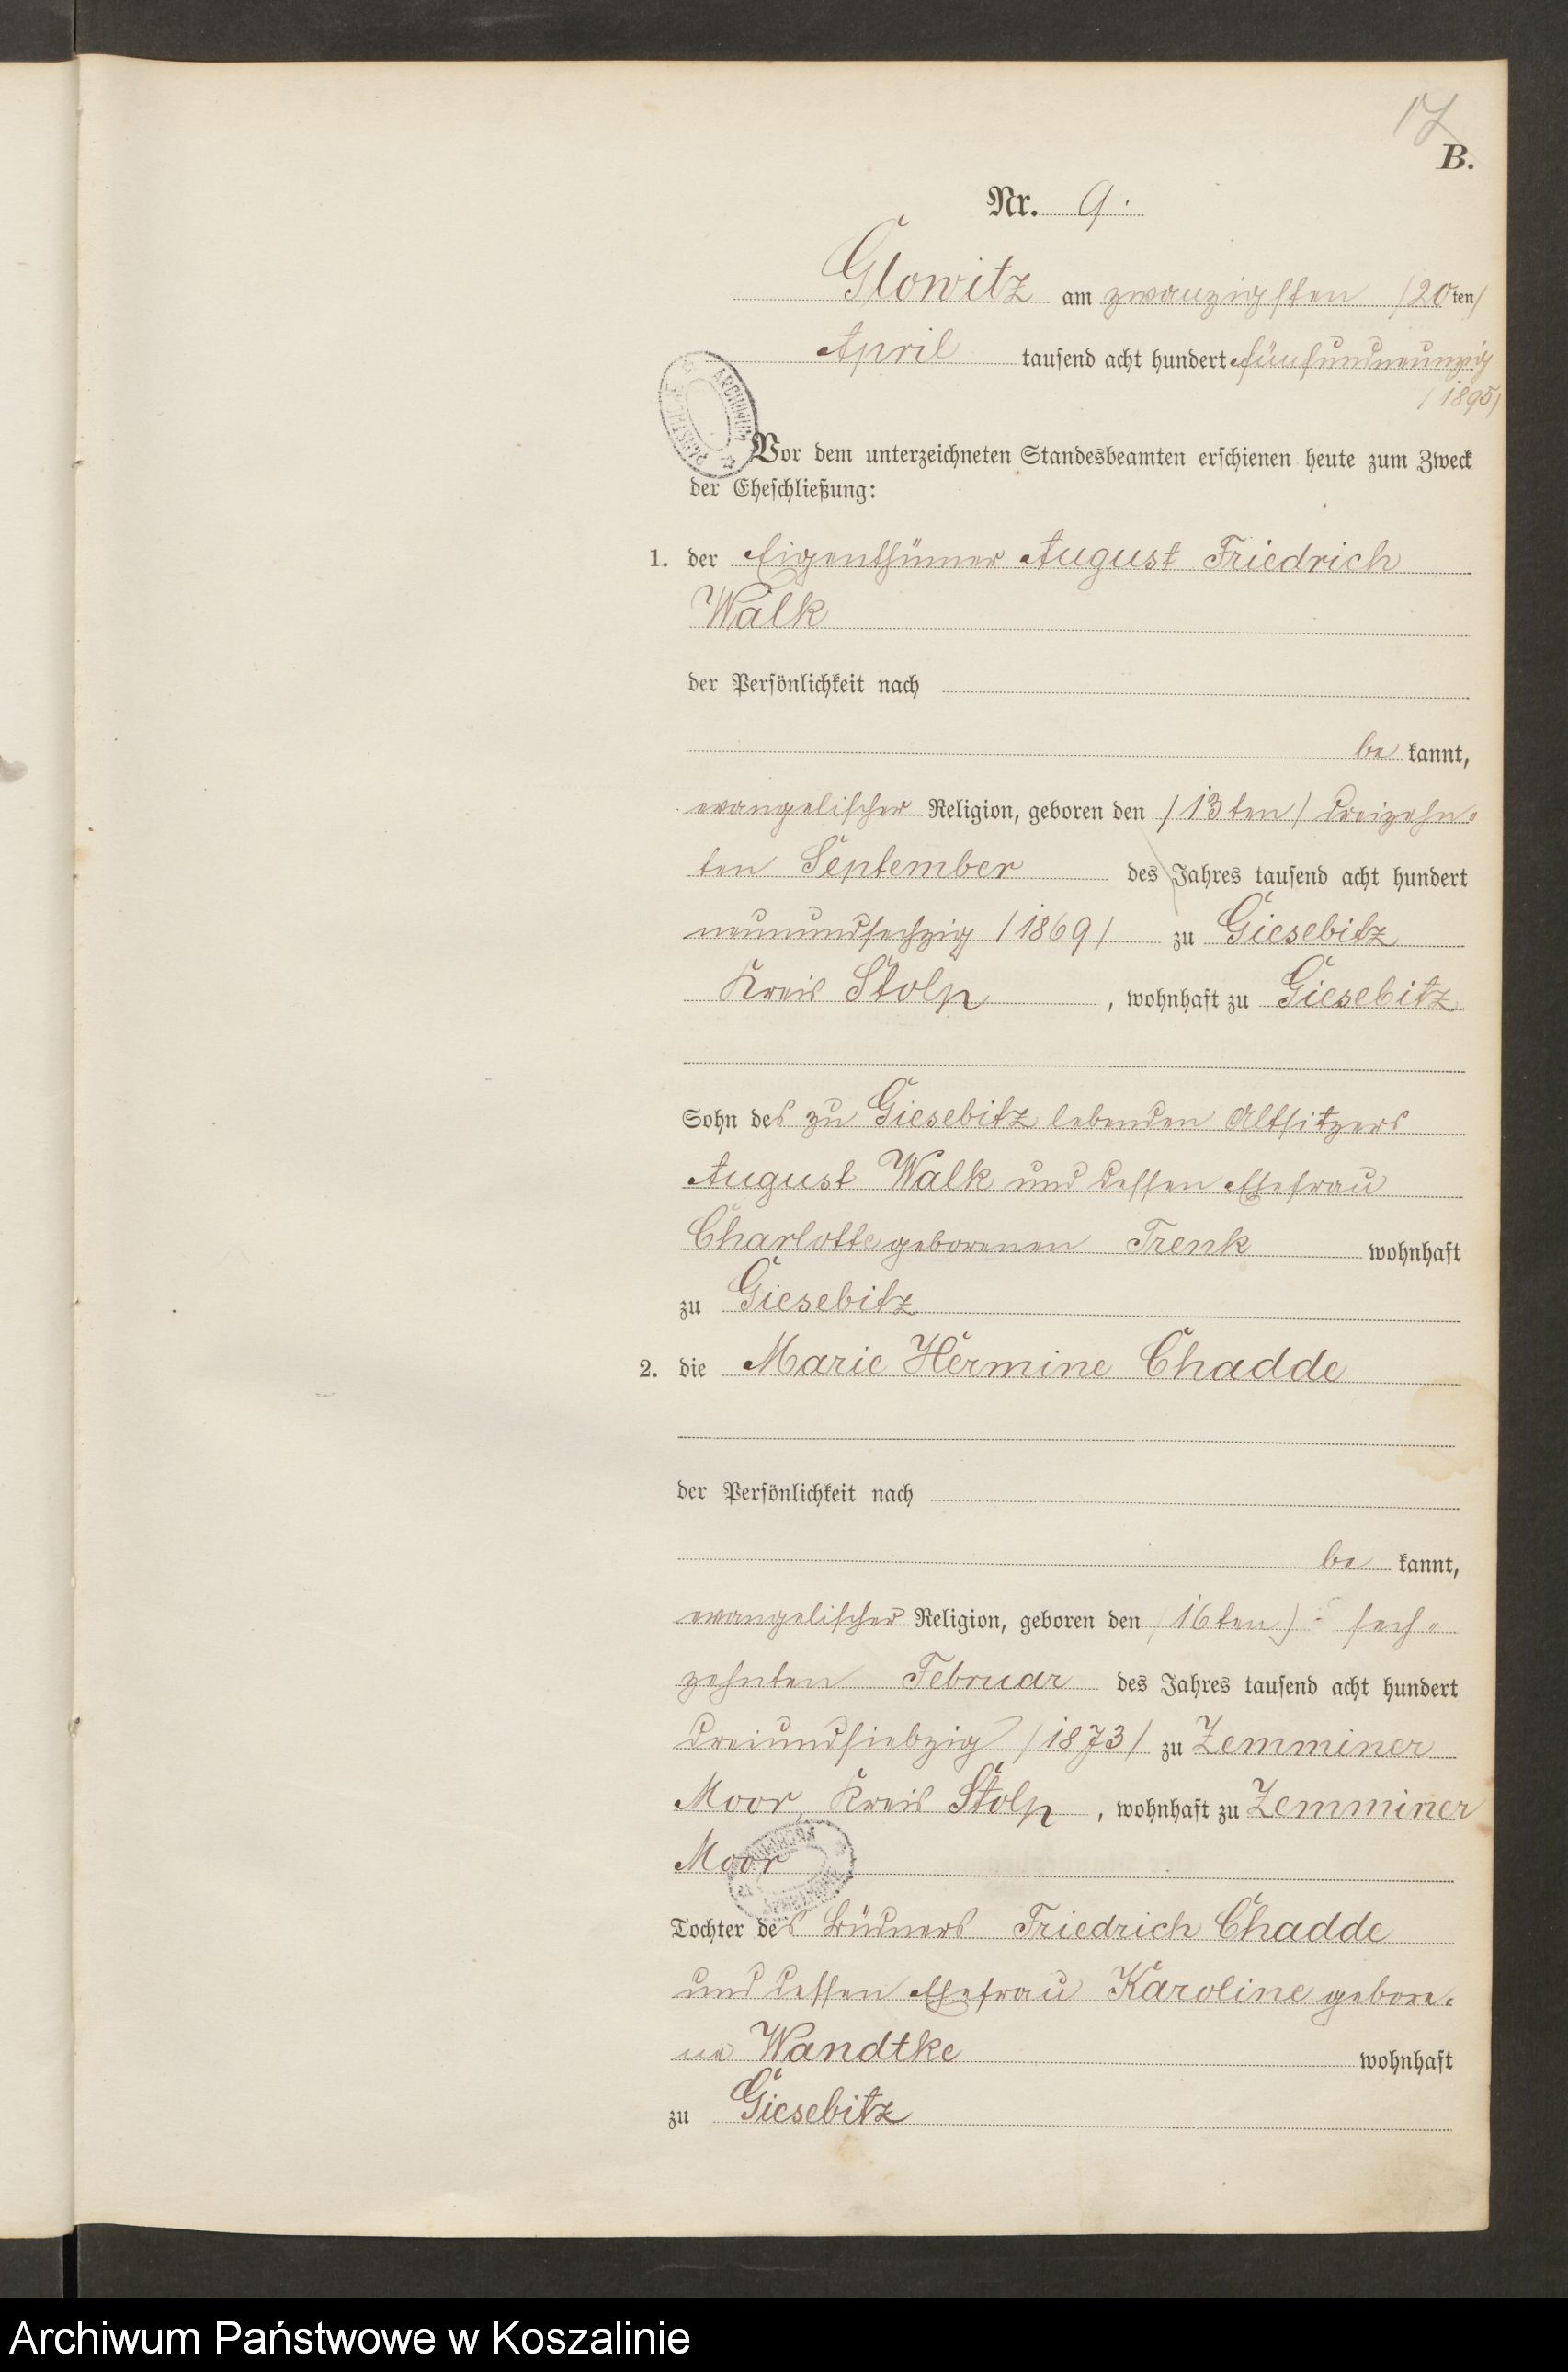 17
B.
Nr. 9.
Glowitz am zwanzigsten /20ten/
April tausend acht hundert fünfundneunzig
/1895/
Vor dem unterzeichneten Standesbeamten erschienen heute zum Zweck
der Eheschließung:
1. der Eigenthümer August Friedrich
Walk
der Persönlichkeit nach
be kannt,
evangelischer Religion, geboren den /13ten/ dreizehn-
ten September des Jahres tausend acht hundert
neunundsechzig /1869/ zu Giesebitz
Kreis Stolp, wohnhaft zu Giesebitz
Sohn des zu Giesebitz lebenden Altsitzers
August Walk und dessen Ehefrau
Charlotte geborenen Trenk wohnhaft
zu Giesebitz
2. die Marie Hermine Chadde
der Persönlichkeit nach
be kannt,
evangelischer Religion, geboren den /16ten/ sech-
zehnten Februar des Jahres tausend acht hundert
dreiundsiebzig /1873/ zu Zemminer
Moor, Kreis Stolp, wohnhaft zu Zemminer
Moor
Tochter des Büdners Friedrich Chadde
und dessen Ehefrau Karoline gebore-
ne Wandtke wohnhaft
zu Giesebitz
Archiwum Państwowe w Koszalinie